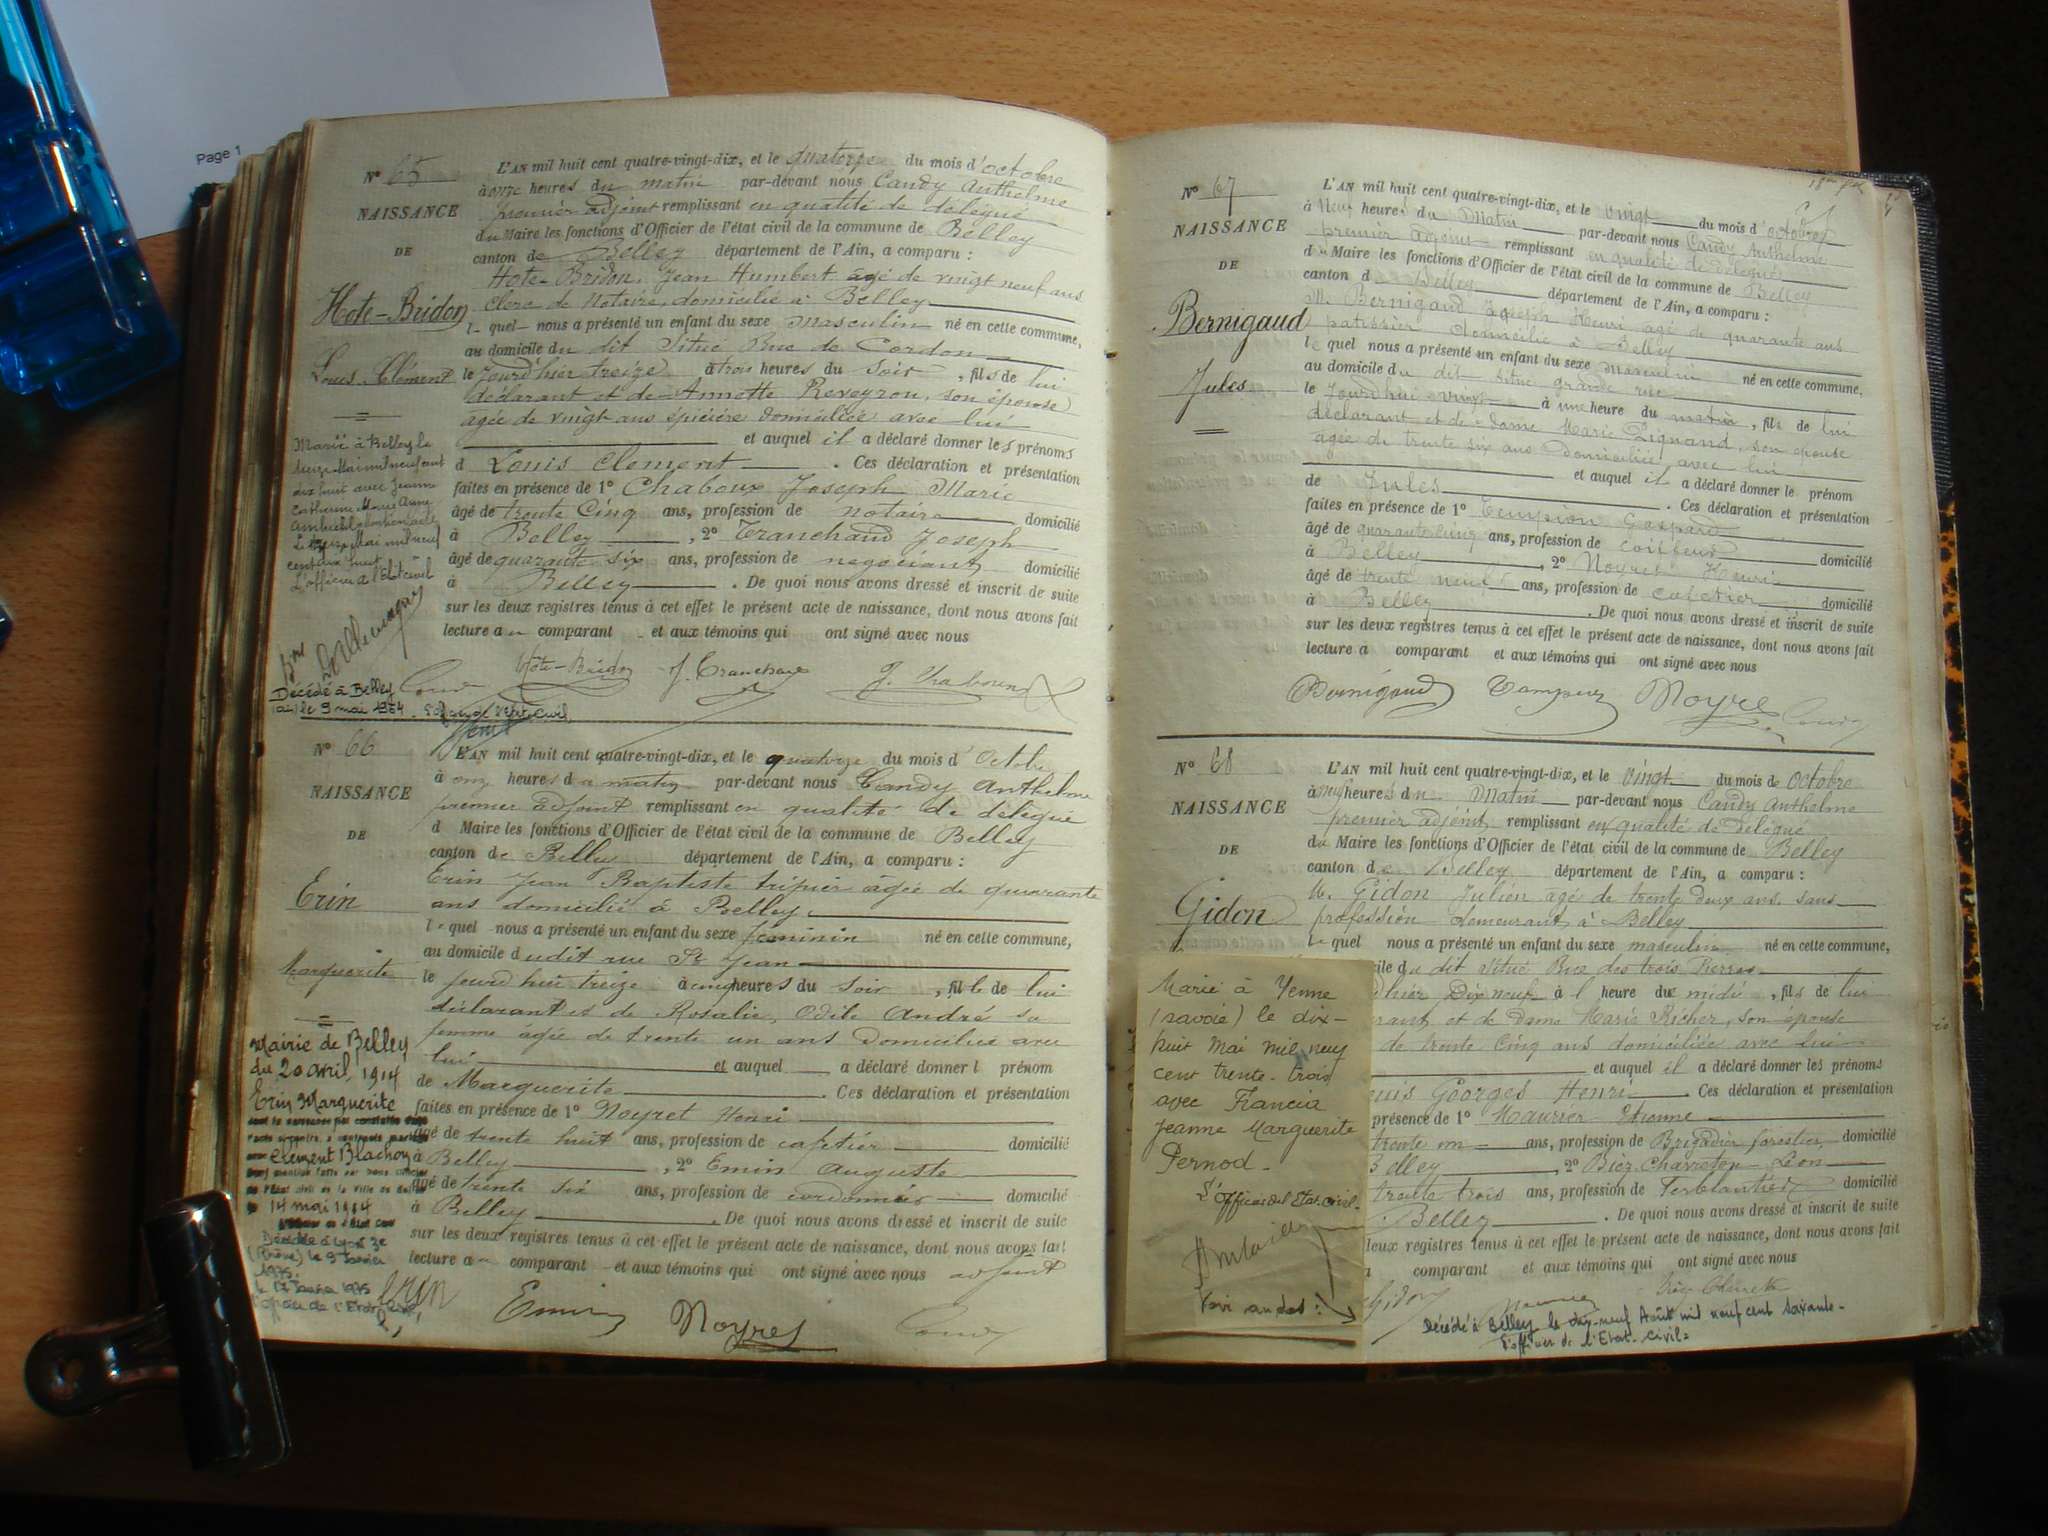 Page 1
N° 65
NAISSANCE
DE
Hote-Bridon
Louis Clément
L'AN mil huit cent quatre-vingt-dix, et le quatorze du mois d'octobre
à onze heures du matin par-devant nous Candy Anthelme
premier adjoint remplissant en qualité de délégué
du Maire les fonctions d'Officier de l'état civil de la commune de Belley
canton de Belley département de l'Ain, a comparu :
Hote-Bridon, Jean Humbert âgé de vingt neuf ans
Clerc de Notaire, domicilié à Belley
lequel nous a présenté un enfant du sexe Masculin né en cette commune,
au domicile du dit Situé Rue de Cordon
le jourd'hier treize à trois heures du soir, fils de lui
déclarant et de Annette Reveyron, son épouse
agée de vingt ans épicière domiciliée avec lui
et auquel il a déclaré donner les prénoms
d Louis Clément. Ces déclaration et présentation
faites en présence de 1° Chaboux Joseph Marie
âgé de trente Cinq ans, profession de notaire domicilié
à Belley, 2° Tranchand Joseph
âgé de quarante six ans, profession de négociant domicilié
à Belley. De quoi nous avons dressé et inscrit de suite
sur les deux registres tenus à cet effet le présent acte de naissance, dont nous avons fait
lecture au comparant et aux témoins qui ont signé avec nous
Marié à Belley le
seize Mai mil neuf cent
dix huit avec Jeanne
Catherine Marie Anne
Le seize Mai mil neuf
cent dix huit
L'officier de l'Etat civil
Candy Hote-Bridon J. Tranchand J. Chaboux
Décédé à Belley
(Ain) le 9 mai 1964. L'officier de l'Etat Civil,
N° 66
NAISSANCE
DE
Erin
Marguerite
L'AN mil huit cent quatre-vingt-dix, et le quatorze du mois d'Octobre
à onze heures du matin par-devant nous Candy Anthelme
premier adjoint remplissant en qualité de délégué
d Maire les fonctions d'Officier de l'état civil de la commune de Belley
canton de Belley département de l'Ain, a comparu :
Erin Jean Baptiste tripier âgée de quarante
ans domicilié à Belley.
lequel nous a présenté un enfant du sexe féminin né en cette commune,
au domicile dudit rue St Jean
le jourd'hier treize à cinq heures du soir, fille de lui
déclarant et de Rosalie, Odile André sa
femme âgée de trente un ans domiciliée avec
lui et auquel a déclaré donner l prénom
de Marguerite. Ces déclaration et présentation
faites en présence de 1° Noyret Henri
âgé de trente huit ans, profession de cafetier domicilié
à Belley, 2° Emin Auguste
âgé de trente six ans, profession de cordonnier domicilié
à Belley. De quoi nous avons dressé et inscrit de suite
sur les deux registres tenus à cet effet le présent acte de naissance, dont nous avons fait
lecture au comparant et aux témoins qui ont signé avec nous adjoint
Mairie de Belley
du 20 avril 1914
Erin Marguerite
Clément Blachon
14 mai 1914
Décédée à Lyon 3e
(Rhône) le 9 Janvier
1975.
le 17 Janvier 1975
L'officier de l'Etat Civil,
Erin Emin Noyret Candy
N° 67
NAISSANCE
DE
Bernigaud
Jules
L'AN mil huit cent quatre-vingt-dix, et le vingt du mois d'octobre
à Neuf heures du Matin par-devant nous Candy Anthelme
premier adjoint remplissant en qualité de délégué
d Maire les fonctions d'Officier de l'état civil de la commune de Belley
canton d Belley département de l'Ain, a comparu :
M. Bernigaud Joseph Henri agé de quarante ans
patissier domicilié à Belley
lequel nous a présenté un enfant du sexe masculin né en cette commune,
au domicile du dit situé grande rue
le jourd'hui vingt à une heure du matin, fils de lui
déclarant et de dame Marie Pignand, son épouse
agée de trente six ans domiciliée avec lui
et auquel il a déclaré donner le prénom
de Jules. Ces déclaration et présentation
faites en présence de 1° Tempion Gaspard
âgé de quarante cinq ans, profession de coiffeur
à Belley, 2° Noyret Henri domicilié
âgé de trente neuf ans, profession de cafetier domicilié
à Belley. De quoi nous avons dressé et inscrit de suite
sur les deux registres tenus à cet effet le présent acte de naissance, dont nous avons fait
lecture à comparant et aux témoins qui ont signé avec nous
Bernigaud Noyret Candy
N° 68
NAISSANCE
DE
Gidon
L'AN mil huit cent quatre-vingt-dix, et le vingt du mois de octobre
à neuf heures du Matin par-devant nous Candy Anthelme
premier adjoint remplissant en qualité de délégué
du Maire les fonctions d'Officier de l'état civil de la commune de Belley
canton de Belley département de l'Ain, a comparu :
M. Gidon Julien âgé de trente deux ans, sans
profession demeurant à Belley
lequel nous a présenté un enfant du sexe masculin né en cette commune,
cile du dit situé Rue des trois Pierres
d'hier Dix neuf à 1 heure du midi, fils de lui
rant et de dame Marie Richer, son épouse
de trente cinq ans domiciliée avec lui
et auquel il a déclaré donner les prénoms
ouis Georges Henri. Ces déclaration et présentation
présence de 1° Maurier Etienne
trente un ans, profession de Brigadier forestier domicilié
Belley, 2° Biez Charreton Léon
trente trois ans, profession de Ferblantier domicilié
Belley. De quoi nous avons dressé et inscrit de suite
deux registres tenus à cet effet le présent acte de naissance, dont nous avons fait
a comparant et aux témoins qui ont signé avec nous
Marié à Yenne
(savoie) le dix-
huit Mai mil neuf
cent trente-trois
avec Francia
Jeanne Marguerite
Pernod.
L'officier de l'Etat-civil.
Voir au dos :
Gidon
Décédé à Belley le dix-neuf Août mil neuf cent soixante.
L'officier de l'Etat-Civil :